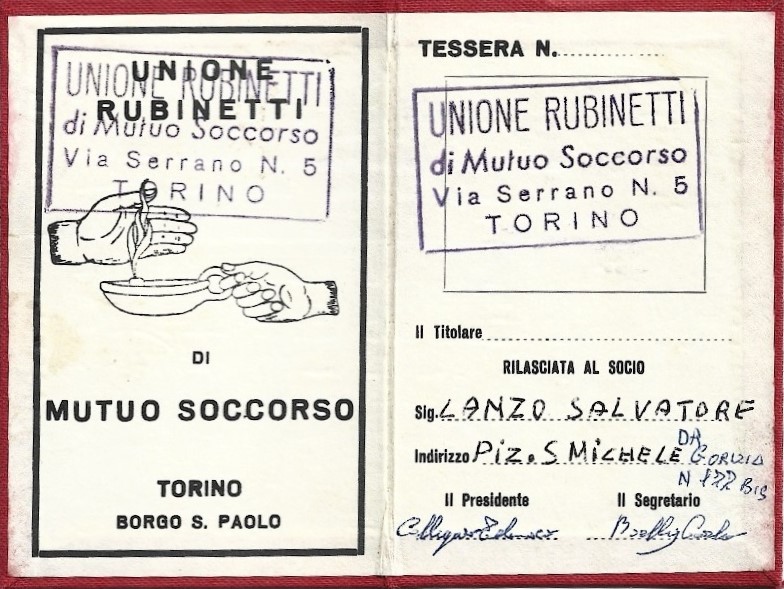 UNIONE
RUBINETTI
UNIONE RUBINETTI
di Mutuo Soccorso
Via Serrano N. 5
TORINO
DI
MUTUO SOCCORSO
TORINO
BORGO S. PAOLO
TESSERA N.
UNIONE RUBINETTI
di Mutuo Soccorso
Via Serrano N. 5
TORINO
Il Titolare
RILASCIATA AL SOCIO
Sig. LANZO SALVATORE
Indirizzo Piz. S MICHELE DA GORIZIA
N BIS
Il Presidente Il Segretario